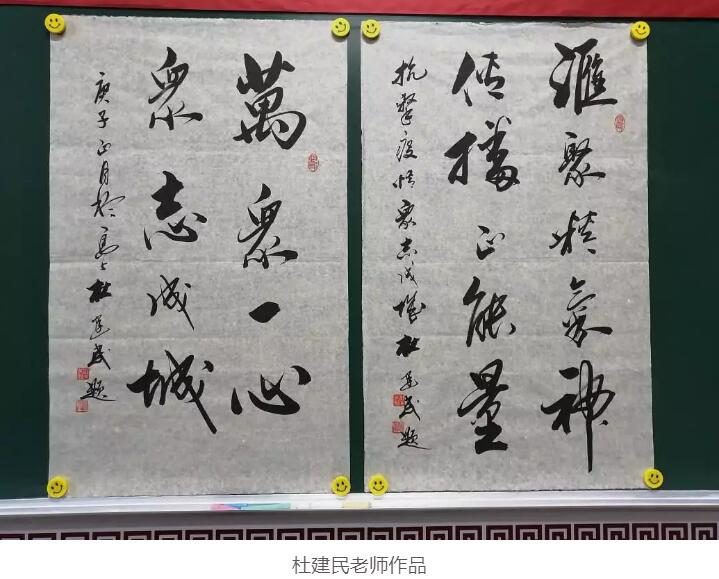 滙聚精氣神
傳播正能量
抗擊疫情衆志成城 杜建民題
萬衆一心
衆志成城
庚子正月於 杜建民題
杜建民老师作品